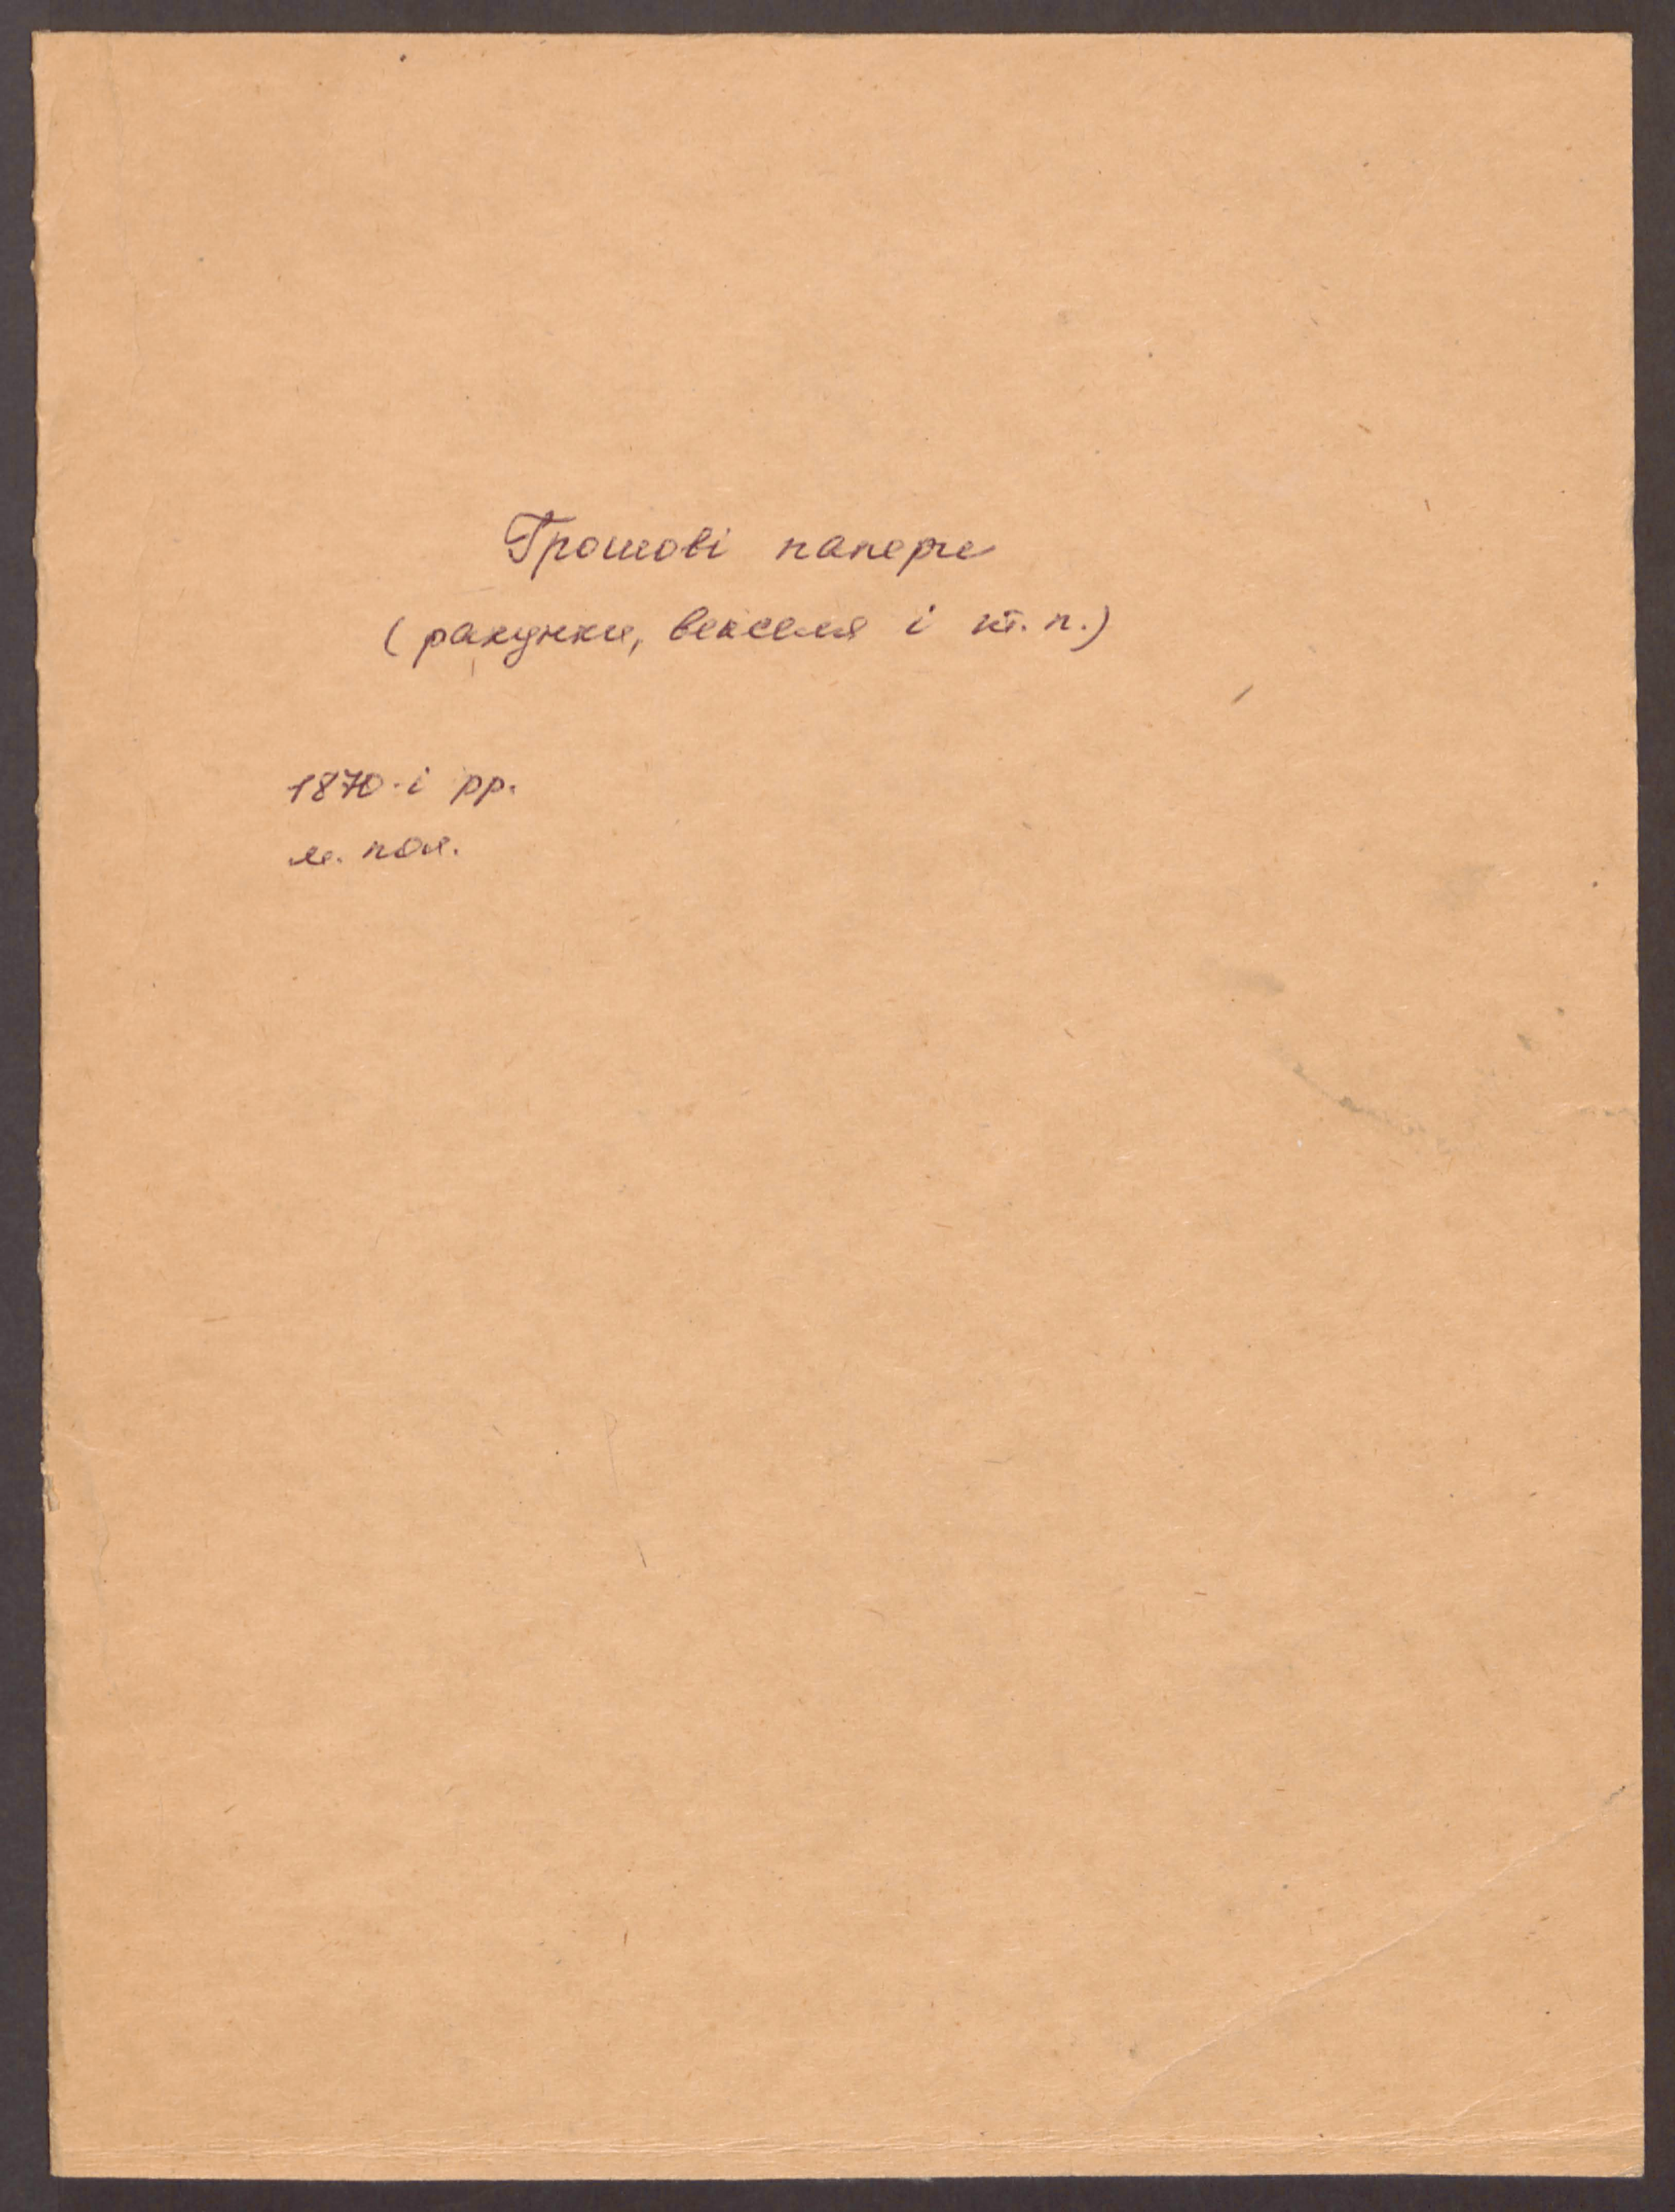 Грошові папери
(ракунки, векселя і т. п.)
1870-і рр.
м. пол.